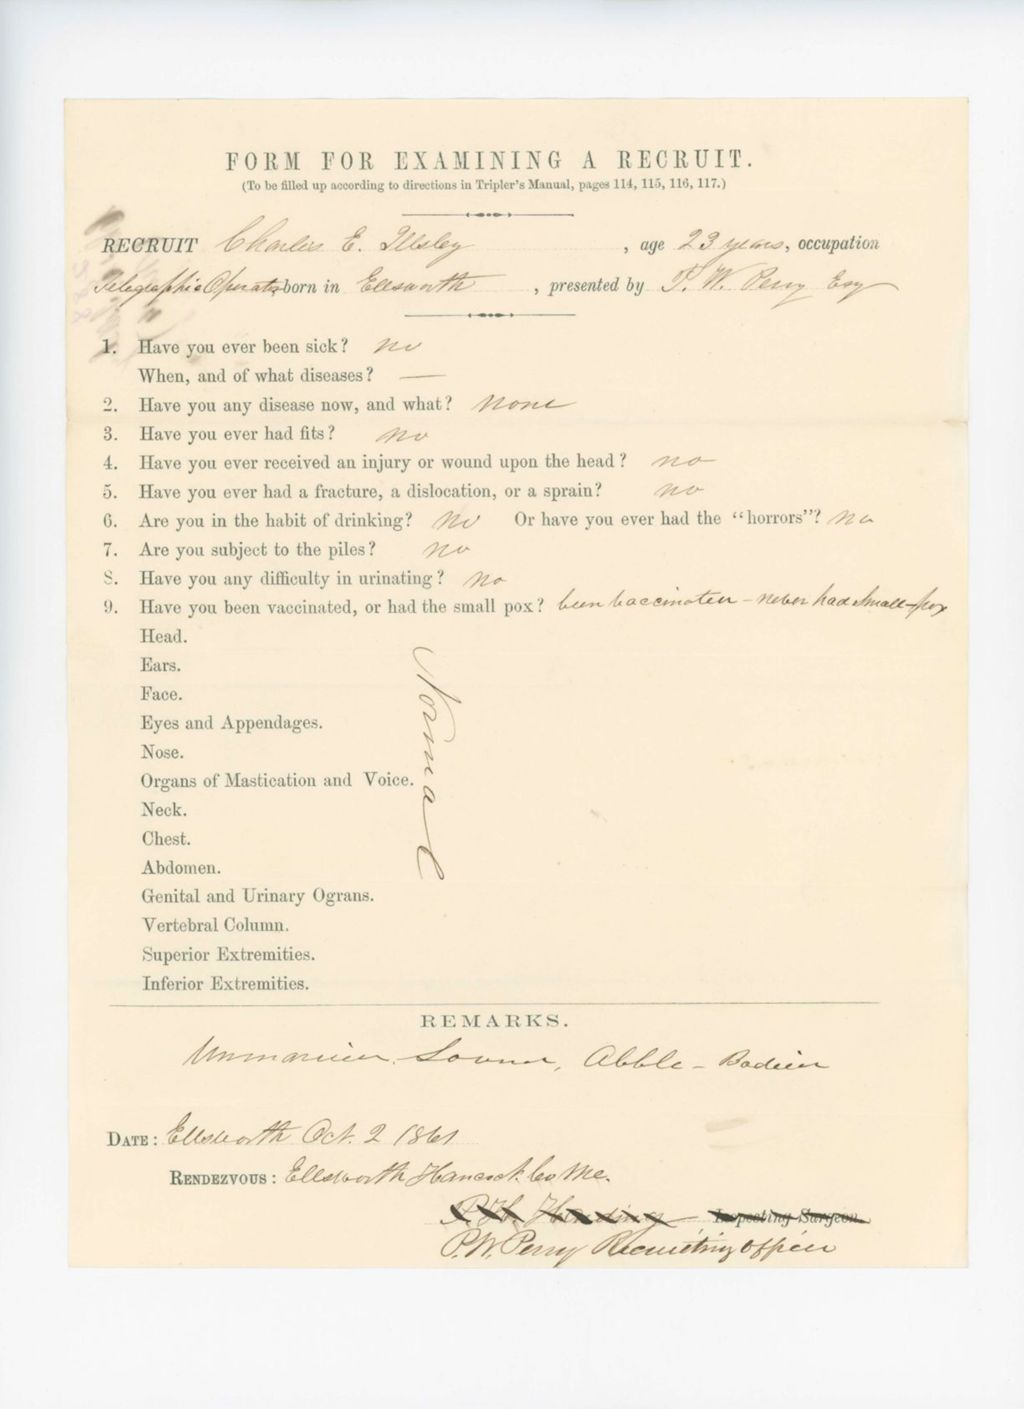 FORM FOR EXAMINING A RECRUIT.
(To be filled up according to directions in Tripler's Manual, pages 114, 115, 116, 117.)
RECRUIT Charles E. Illsley, age 23 years, occupation
Telegraphic Operator born in Ellsworth, presented by P. W. Perry Esq
1. Have you ever been sick? no
When, and of what diseases? —
2. Have you any disease now, and what? none
3. Have you ever had fits? no
4. Have you ever received an injury or wound upon the head? no
5. Have you ever had a fracture, a dislocation, or a sprain? no
6. Are you in the habit of drinking? no Or have you ever had the "horrors"? no
7. Are you subject to the piles? no
8. Have you any difficulty in urinating? no
9. Have you been vaccinated, or had the small pox? been vaccinated - never had small-pox
Head.
Ears.
Face.
Eyes and Appendages.
Nose.
Organs of Mastication and Voice.
Neck.
Chest.
Abdomen.
Genital and Urinary Ograns.
Vertebral Column.
Superior Extremities.
Inferior Extremities.
Normal
REMARKS.
Unmarried. Sound, Abble-Bodied
DATE: Ellsworth Oct. 2 1861
RENDEZVOUS: Ellsworth Hancock Co Me.
P. H. Harding Inspecting Surgeon.
P. W. Perry Recruiting Officer